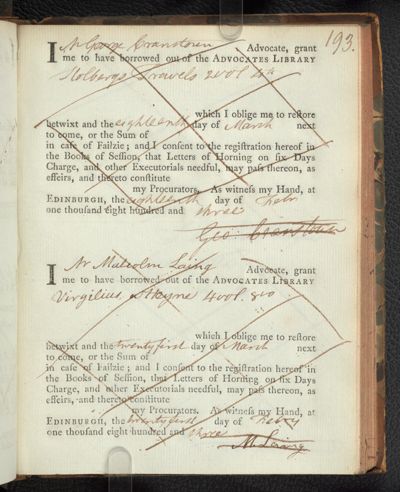 193.
I Mr George Cranstoun Advocate, grant
me to have borrowed out of the ADVOCATES LIBRARY
Holbergs Travels 2 vol
which I oblige me to reſtore
betwixt and the eighteenth day of March next
to come, or the Sum of
in caſe of Failzie; and I conſent to the regiſtration hereof in
the Books of Seſſion, that Letters of Horning on ſix Days
Charge, and other Executorials needful, may paſs thereon, as
effeirs, and thereto conſtitute
my Procurators. As witneſs my Hand, at
EDINBURGH, the eighteenth day of Febry
one thouſand eight hundred and three
Geo: Cranstoun
I Mr Malcolm Laing Advocate, grant
me to have borrowed out of the ADVOCATES LIBRARY
Virgilius Heyne 4 vol. 8vo
which I oblige me to reſtore
betwixt and the twenty first day of March next
to come, or the Sum of
in caſe of Failzie; and I conſent to the regiſtration hereof in
the Books of Seſſion, that Letters of Horning on ſix Days
Charge, and other Executorials needful, may paſs thereon, as
effeirs, and thereto conſtitute
my Procurators. As witneſs my Hand, at
EDINBURGH, the twenty first day of Febry
one thouſand eight hundred and three
M. Laing